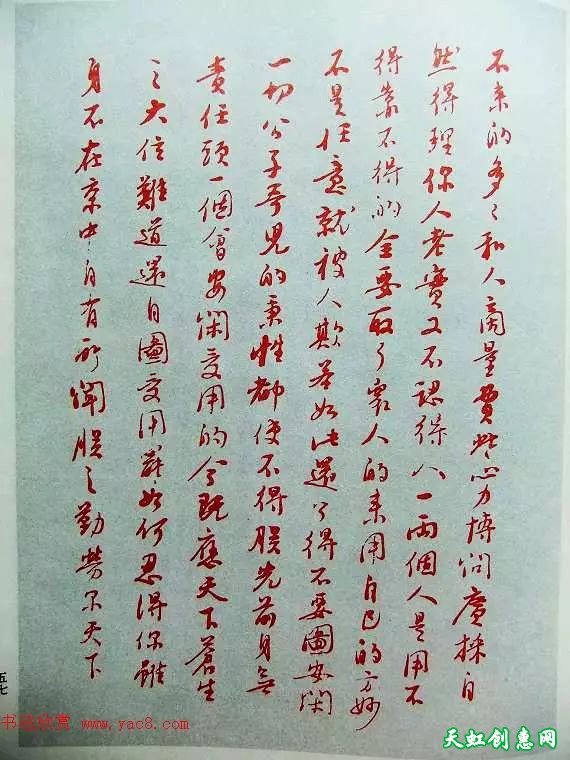 不来的多々和人商量費些心力博问廣採自
然得理你人老實又不認得人一兩個人是用不
得靠不得的全要取了衆人的来用自己的方妙
不是任意就被人欺若如此還了得不要圖安闲
一切公子哥兒的秉性都使不得朕先前身無
責任頭一個會安闲受用的今既應天下蒼生
之大位難道還自圖受用辭如何忍得你雖
身不在京中自有所闻朕之勤勞天下
五七
书法欣赏 www.yac8.com
天虹创惠网